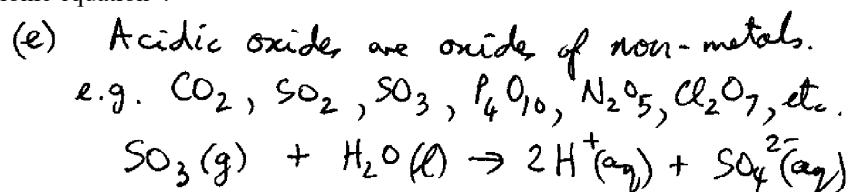 (e) Acidic oxides are oxides of non-metals.
e.g. CO₂, SO₂, SO₃, P₄O₁₀, N₂O₅, Cl₂O₇, etc.
SO₃(g) + H₂O(l) → 2H⁺(aq) + SO₄²⁻(aq)